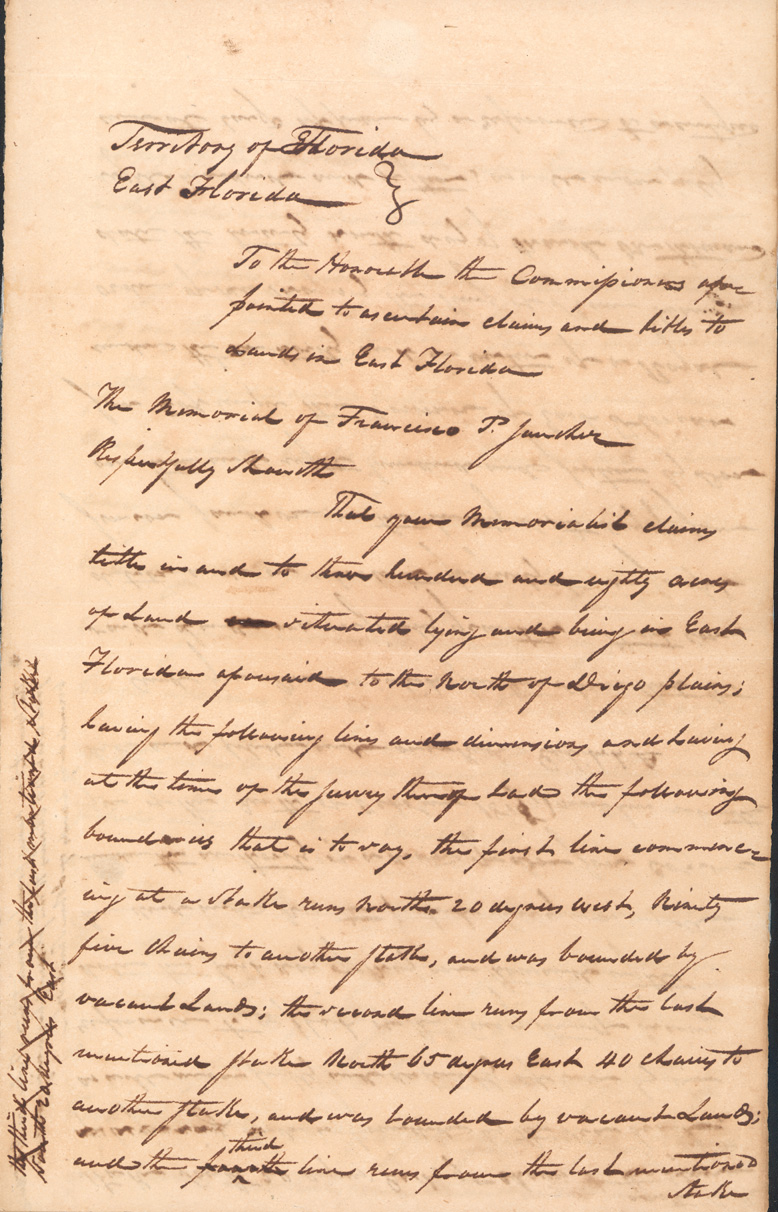 Territory of Florida
East Florida
To the Honorable the Commissioners ap=
pointed to ascertain claims and titles to
Lands in East Florida
The Memorial of Francisco P. Sanchez
Respectfully Sheweth
That your Memorialist claims
title in and to three hundred and eighty acres
of Land situated lying and being in East
Florida aforesaid to the North of Diego plains;
having the following lines and dimensions and having
at the time of the survey thereof had the following
boundaries that is to say, the first line commenc=
ing at a Stake runs North 20 degrees west, Ninety
five Chains to another Stake, and was bounded by
vacant Lands; the second line runs from the last
mentioned Stake North 65 degrees East 40 chains to
another Stake, and was bounded by vacant Lands;
and the fourth third line runs from the last mentioned
Stake
the third line runs from the last mentioned Stake
South 20 degrees East